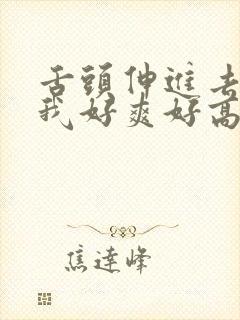 舌頭伸進去
我好爽好高
焦達峰